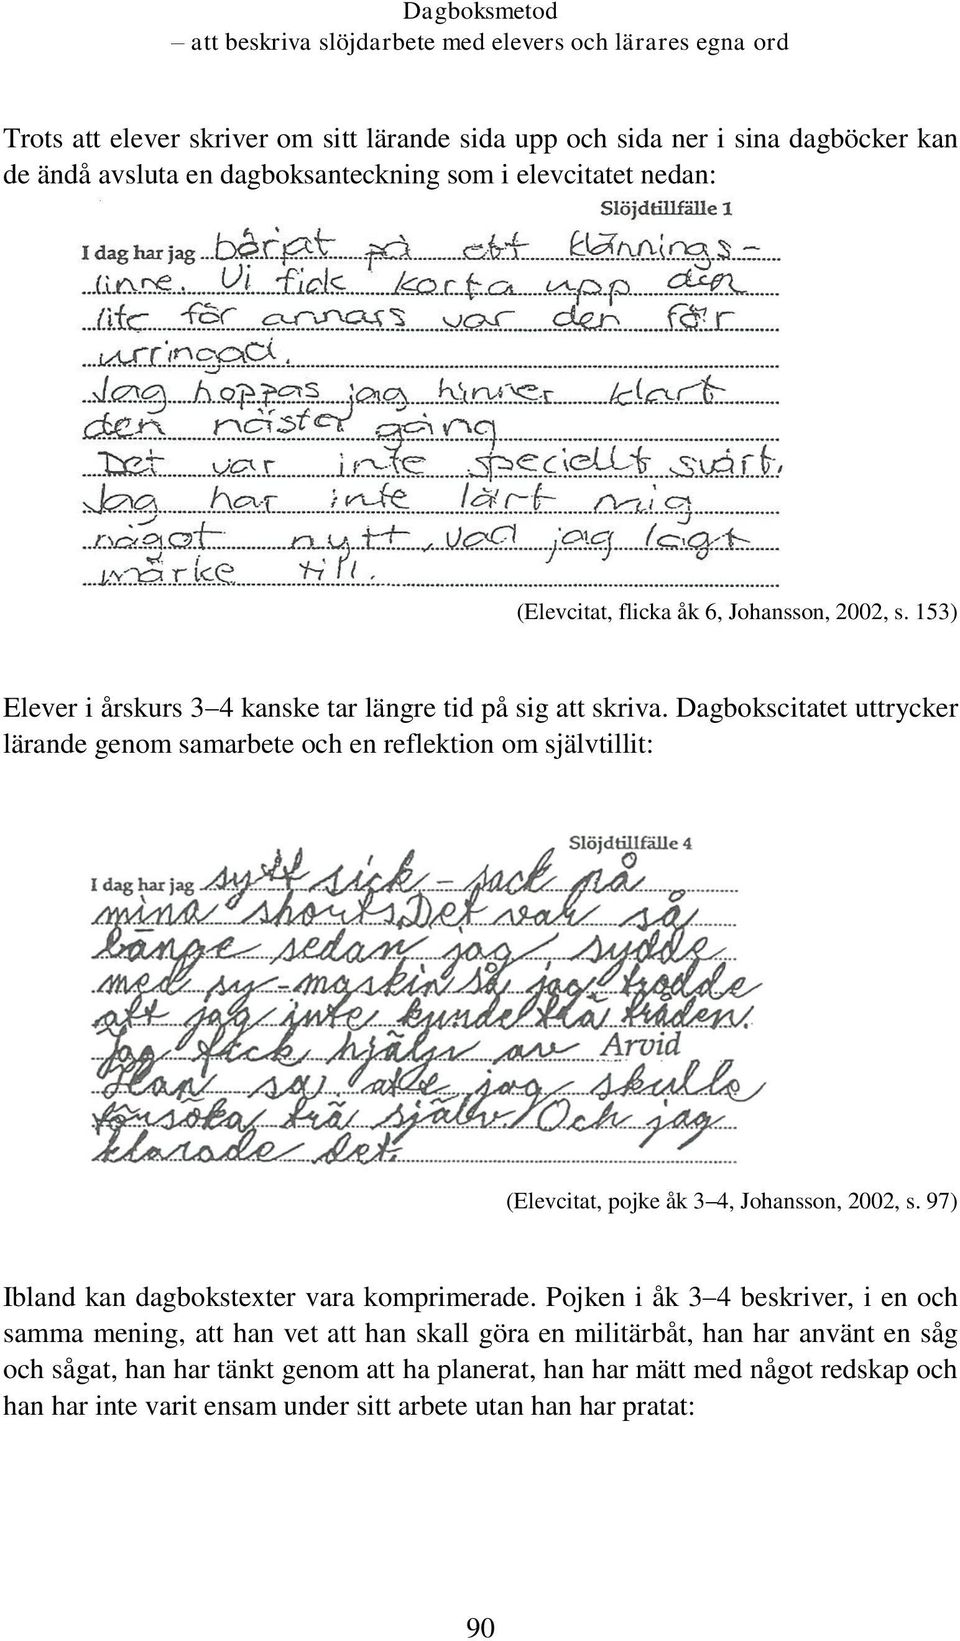 Dagboksmetod
– att beskriva slöjdarbete med elevers och lärares egna ord
Trots att elever skriver om sitt lärande sida upp och sida ner i sina dagböcker kan
de ändå avsluta en dagboksanteckning som i elevcitatet nedan:
Slöjdtillfälle 1
I dag har jag börjat på ett klännings-
linne. Vi fick korta upp den
lite för annars var den för
urringad.
Jag hoppas jag hinner klart
den näster gång
Det var inte speciellt svårt.
Jag har inte lärt mig
något nytt, vad jag lagt
märke till.
(Elevcitat, flicka åk 6, Johansson, 2002, s. 153)
Elever i årskurs 3–4 kanske tar längre tid på sig att skriva. Dagbokscitatet uttrycker
lärande genom samarbete och en reflektion om självtillit:
Slöjdtillfälle 4
I dag har jag sytt sick-sack på
mina shorts Det var så
länge sedan jag sydde
med sy-maskin så jag trodde
att jag inte kunde trä tråden.
Jag fick hjälv av Arvid
Han sa att jag skulle
försöka trä själv. Och jag
klarade det.
(Elevcitat, pojke åk 3–4, Johansson, 2002, s. 97)
Ibland kan dagbokstexter vara komprimerade. Pojken i åk 3–4 beskriver, i en och
samma mening, att han vet att han skall göra en militärbåt, han har använt en såg
och sågat, han har tänkt genom att ha planerat, han har mätt med något redskap och
han har inte varit ensam under sitt arbete utan han har pratat:
90